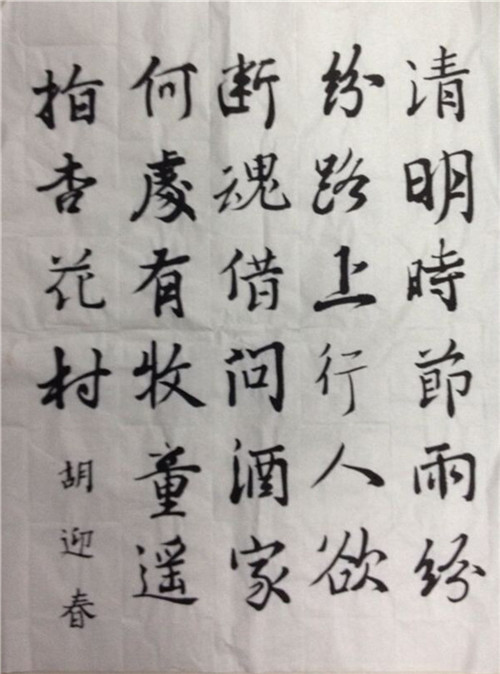 清明時節雨紛
紛路上行人欲
断魂借问酒家
何處有牧童遥
指杏花村
胡迎春